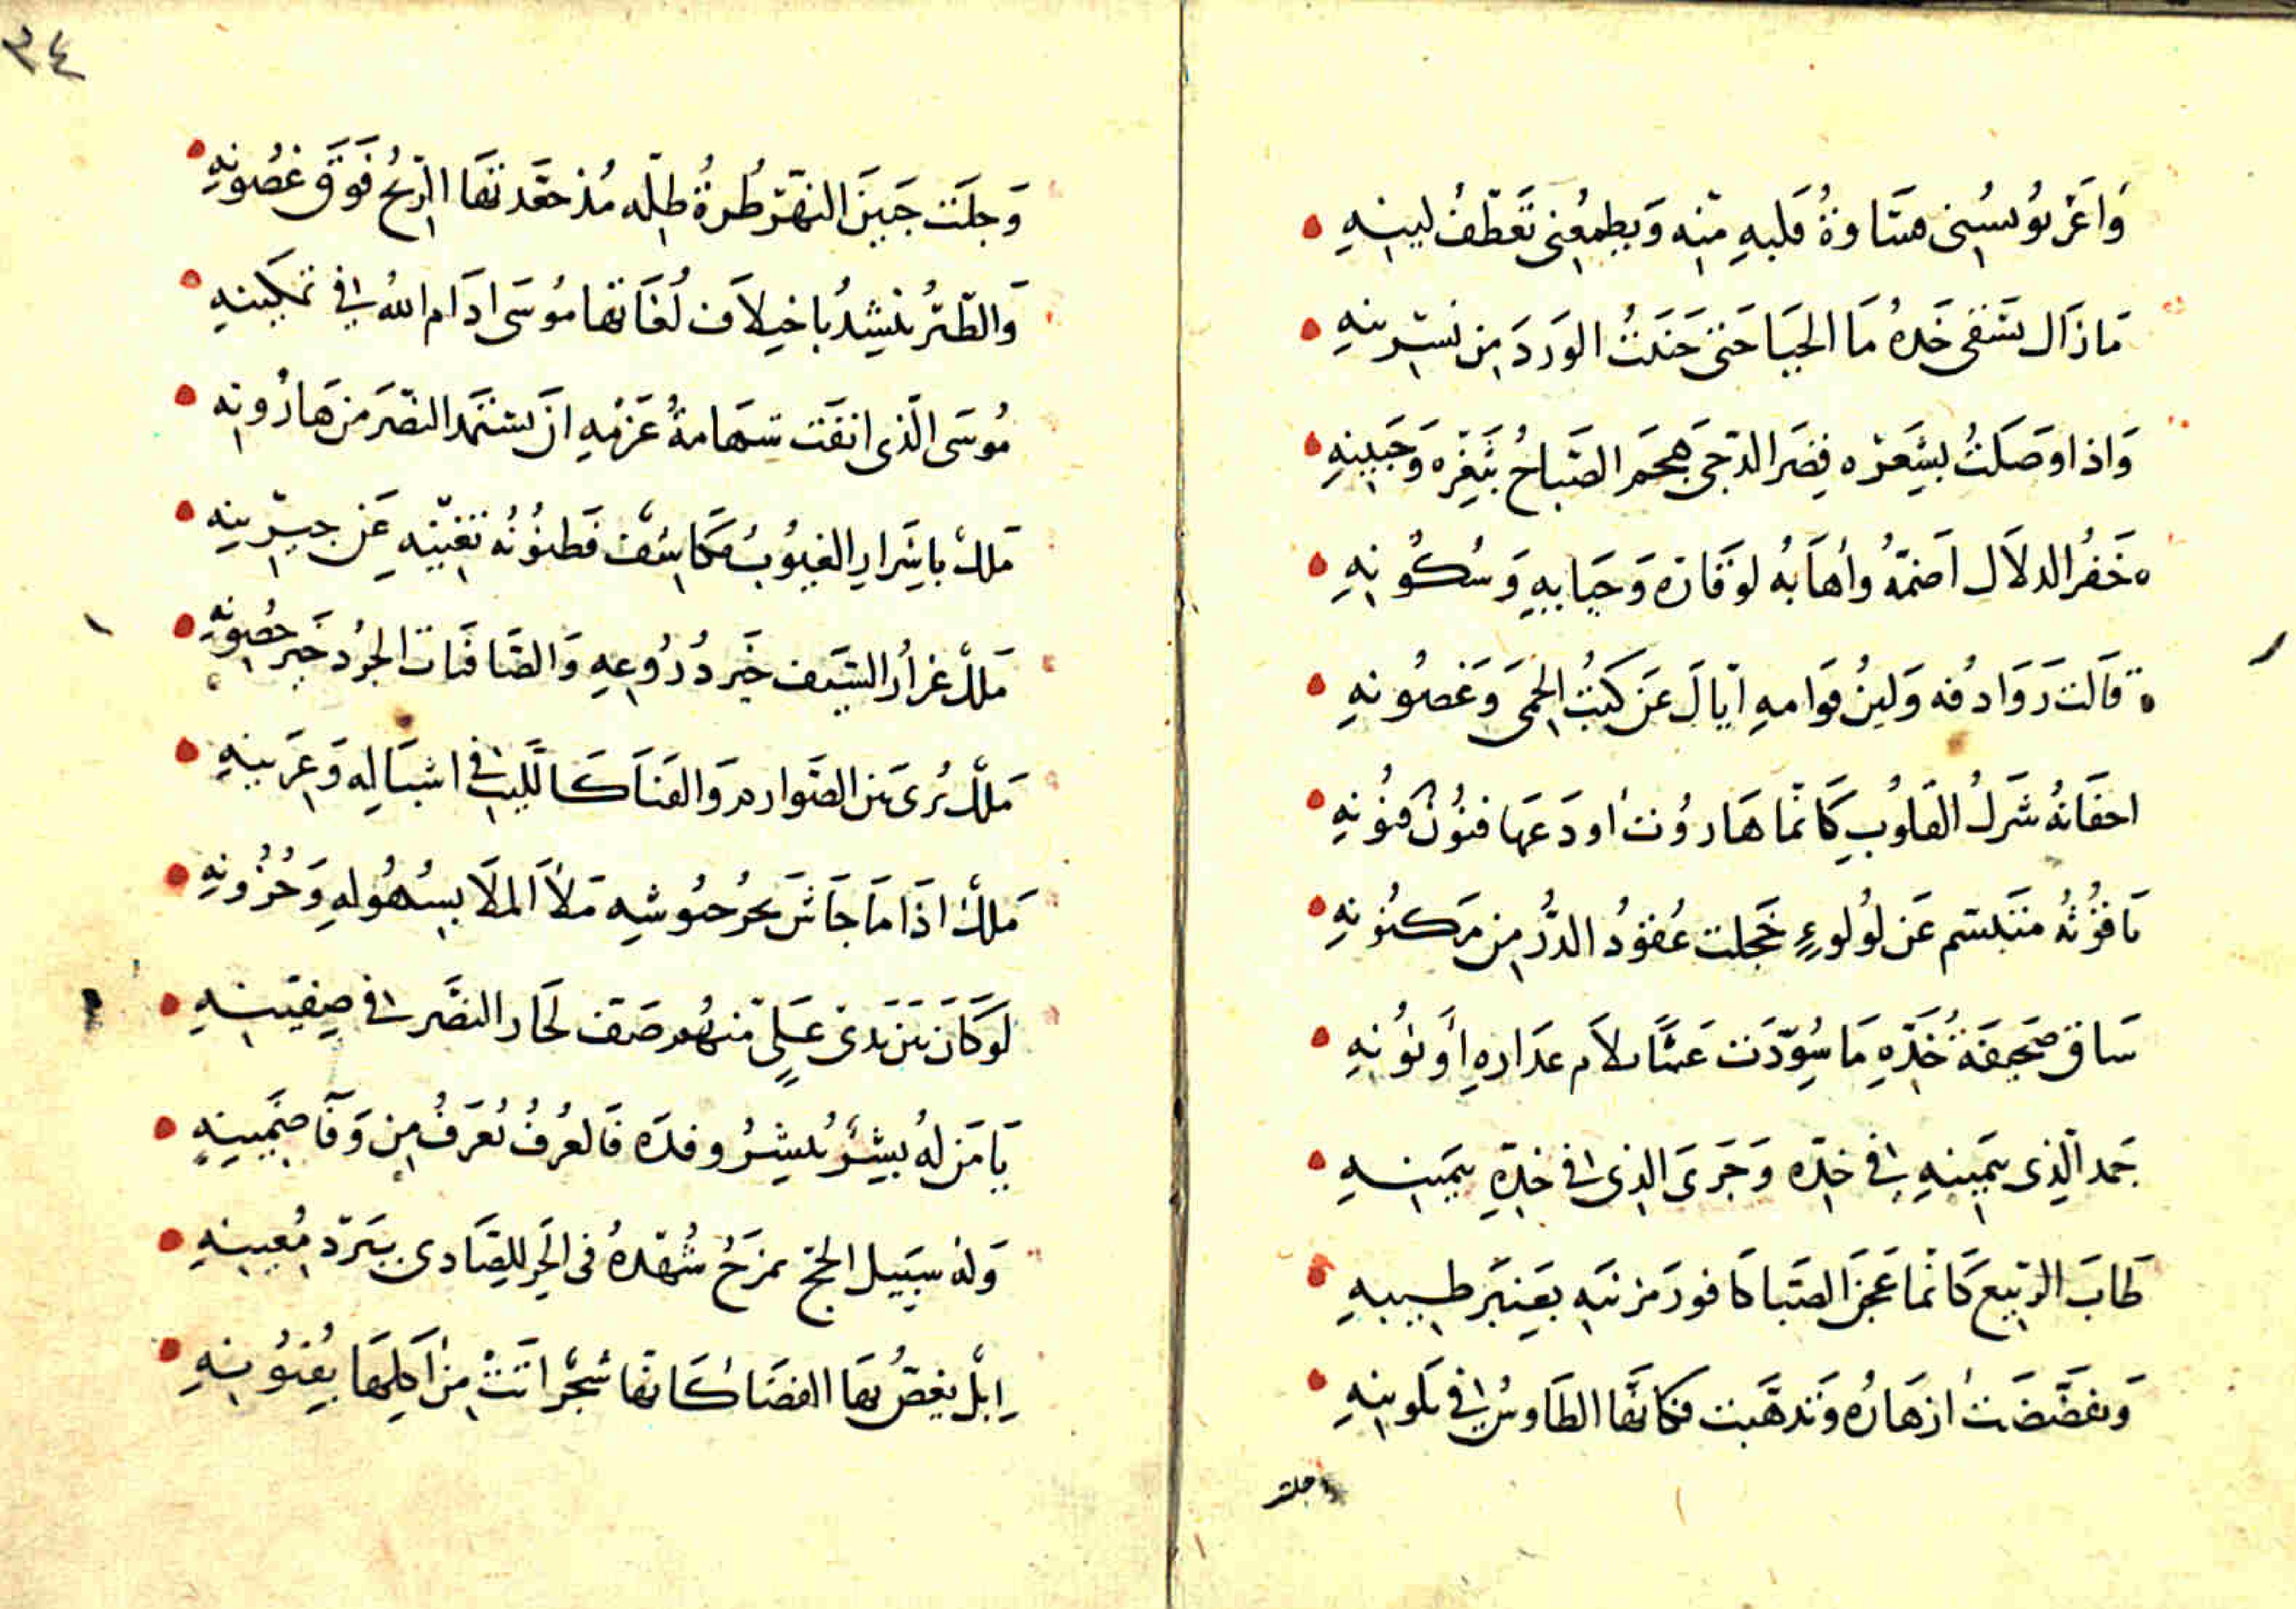 وَاغَرّ يُوئسُنِى قسَاوةُ قَلبِهِ مِنّه وَيطمِعُنى تَعَطّفُ لينِهِ
مَازَال يسَقى خَدهُ مَا الحَيَا حَتى جَنَيتُ الوَردَ مِن نَسرينِهِ
وَاذا وَصَلتُ بشَعَرْه قِصَرَ الدّجَى هَجَمَ الصّبَاحُ بثَغرِه وَجَبِينِهِ
خَفرُ الدلاَل اَضمّهُ واُهَابهُ لوَقَارَه وَحَيَايهِ وَسُكُونِهِ
قَالَت رَوَادفُه وَلينُ قوَامهِ ايّاكَ عَن كثبُ الحِمَى وَغَصُونهِ
اجفَانهُ شَركُ القلوُبِ كَانّما هَاروُت اودَعَها فنوُن فنُونهِ
يَاقوُتهُ متَبَسّم عَن لوُلوءٍ خَجَلت عُقودُ الدُّر مِن مَكنُونهِ
سَاق صَحِيفَةُ خَدّهِ مَا سُوّدَت عَبثَا بلاَم عدَارهِ أوَ نوُنهِ
جَمدَ الّذِى بيَمينهِ فِى خدّه وَجَرَى الذِى فى خدّهِ بيَمينهِ
طَابَ الرّبيعُ كَانّما عَجنَ الصَبا كَافورَ مزنَهِ بعَنبَر طيبهِ
وَتفضّضَتْ ازهَارُه وَتَذهّبَت فكَانّها الطَاوسُ فى تلَوينِهِ
وجلت
٣٤
وَجلَت جَبينَ النهَر طُرةُ طلّه مُذ جعّدتهَا الرّيحُ فَوقَ غصُونِهِ
وَالطّيرُ ينشِدُ باختِلاَف لُغَاتها مُوسَى ادَام اللهُ فى تمكينِهِ
مُوسَى الّذى انفَت شهَامةُ عَزْمهِ ان يستَمدَ النصَرَ مِن هَارُونِه
مَلكْ باسَرارِ الغيوُبِ مكَاشفْ فَظنُونُه تغنيه عَن جبرينِه
مَلكْ غرَارُ السّيَف خَير دُرُوعِهِ وَالصَافنَات الجرُد خَير حُصُونِهِ
مَلكْ يُرى بَين الصّوارم وَالقنَا كَاللّيث فى اشبَالِه وَعَرينهِ
مَلكْ اذَا مَا جَاشَ بحَرُ جيُوشِهِ مَلأ المَلَا بسُهُولهِ وَحُزُونِهِ
لوَ كَانَ بَين يَدى عَلىّ منهُم صَف لحَازَ النصَر فى صِفّينِهِ
يَا مَن لهُ بِشْرٌ يُبشرُ وفدَه فَالعُرفُ نُعَرفُ مِن وَفَآ ضَمِينِهِ
وَلهُ سبَيل الحجّ يمزَجُ شُهدهُ فى الحَرّ للصّادى ببَردّ مُعِينِهِ
اِبلْ يغصّ بهَا الفضَا كَانّها شَجْر اتَتْ مِن اَكلِهَا بفنُونِهِ